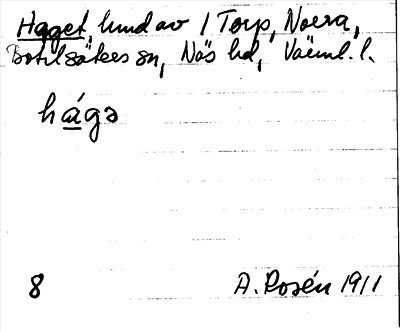 Haget, hmd av 1 Torp, Norra,
Botilsäkers sn, Näs hd, Värml. l.
hágə
8 A. Rosén 1911